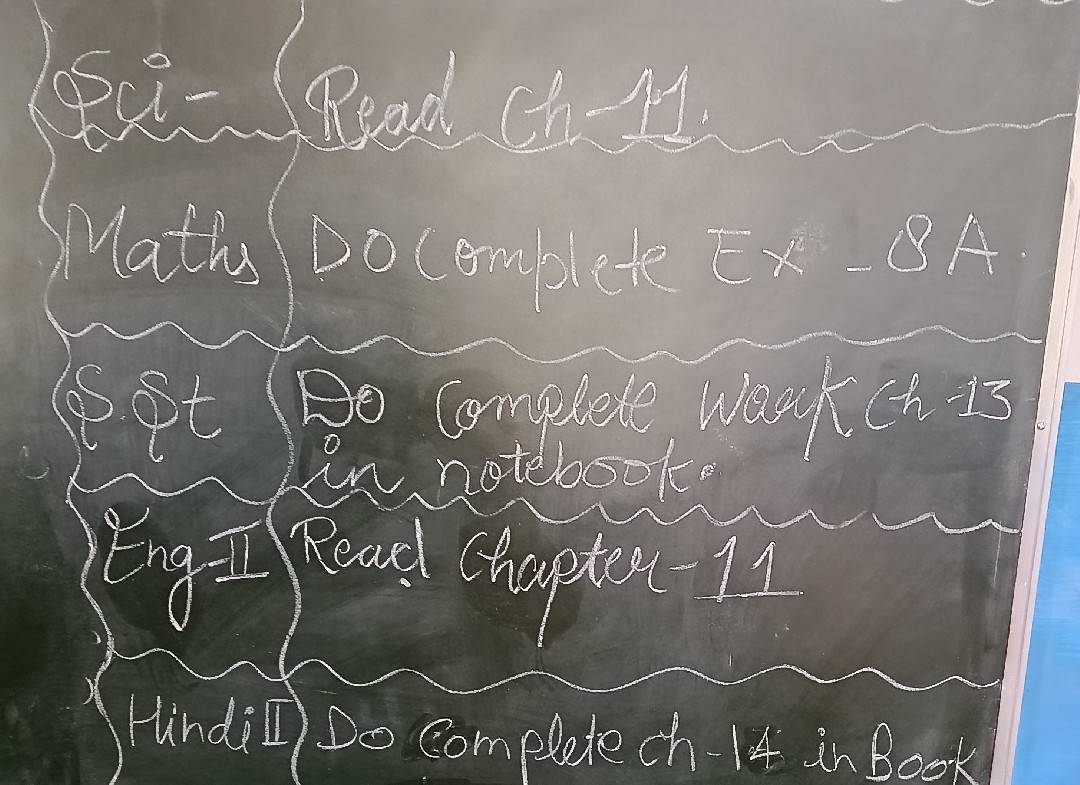 Sci- Read Ch-11.
Maths Do Complete Ex - 8A.
S.St Do Complete Work Ch-13
in notebook.
Eng-II Read Chapter-11
Hindi II Do Complete ch-14 in Book